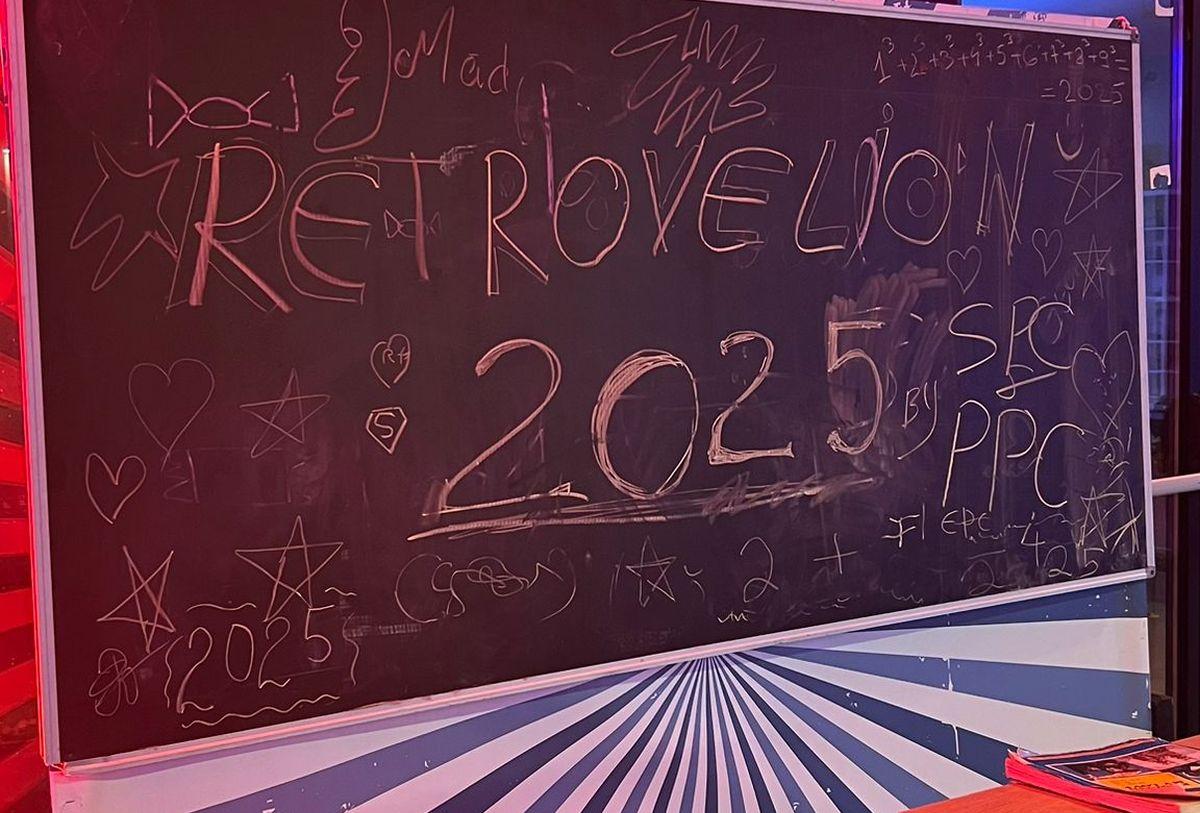 Mad
1³+2³+3³+4³+5³+6³+7³+8³+9³=
=2025
RETROVELION
2025
S
BY
SPC
PPC
2
+
2025